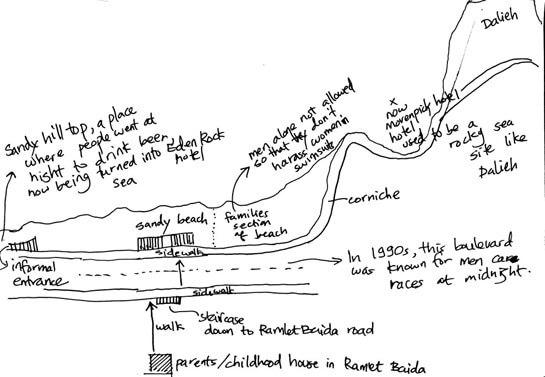 Dalieh
Sandy hill top, a place
where people went at
night to drink beer,
now being turned into Eden Rock
hotel
sea
men alone not allowed
so that they don't
harass women in
swimsuits
x
now
Movenpick hotel
hotel
used to be a
rocky sea
site like
Dalieh
sandy beach
families
section
of beach
corniche
sidewalk
informal
entrance
In 1990s, this boulevard
was known for men car
races at midnight.
sidewalk
walk
staircase
down to Ramlet Baida road
parents/childhood house in Ramlet Baida